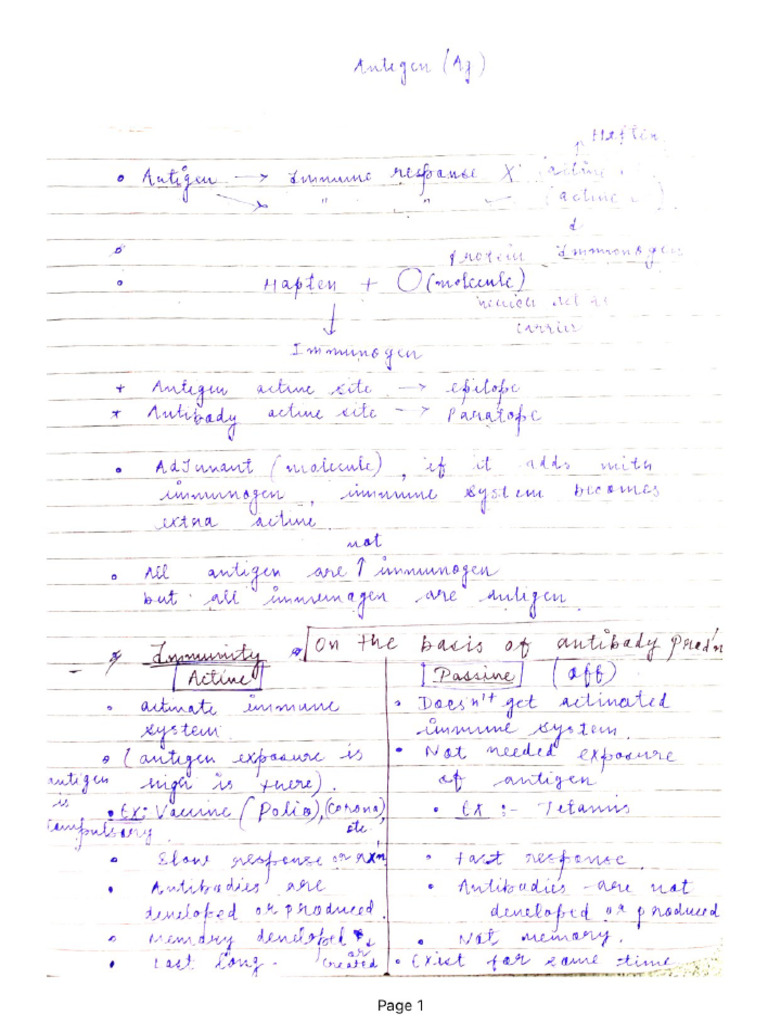 Antigen (Ag)
Hapten
• Antigen → Immune response X (active
" " ✓ (active
&
Protein Immunogen
• Hapten + O (molecule)
which act as
carrier
↓
Immunogen
* Antigen active site → epitope
* Antibody active site → Paratope
• AdJuvant (molecule), if it adds with
immunogen, immune system becomes
extra active.
not
• All antigen are ↑ immunogen
but all immunogen are antigen.
* Immunity On the basis of antibody prod'n
Active
• activate immune
system.
• (antigen exposure is
high is there).
antigen
is
compulsory
• Ex: Vaccine (Polio), (corona),
etc.
• Slow response or rx'n
• Antibodies are
developed or produced.
• Memory developed
or
created
• Last long.
Passive (off)
• Doesn't get activated
immune system.
• Not needed exposure
of antigen
• Ex :- Tetanus
• Fast response.
• Antibodies are not
developed or produced
• Not memory.
• Exist for some time
Page 1